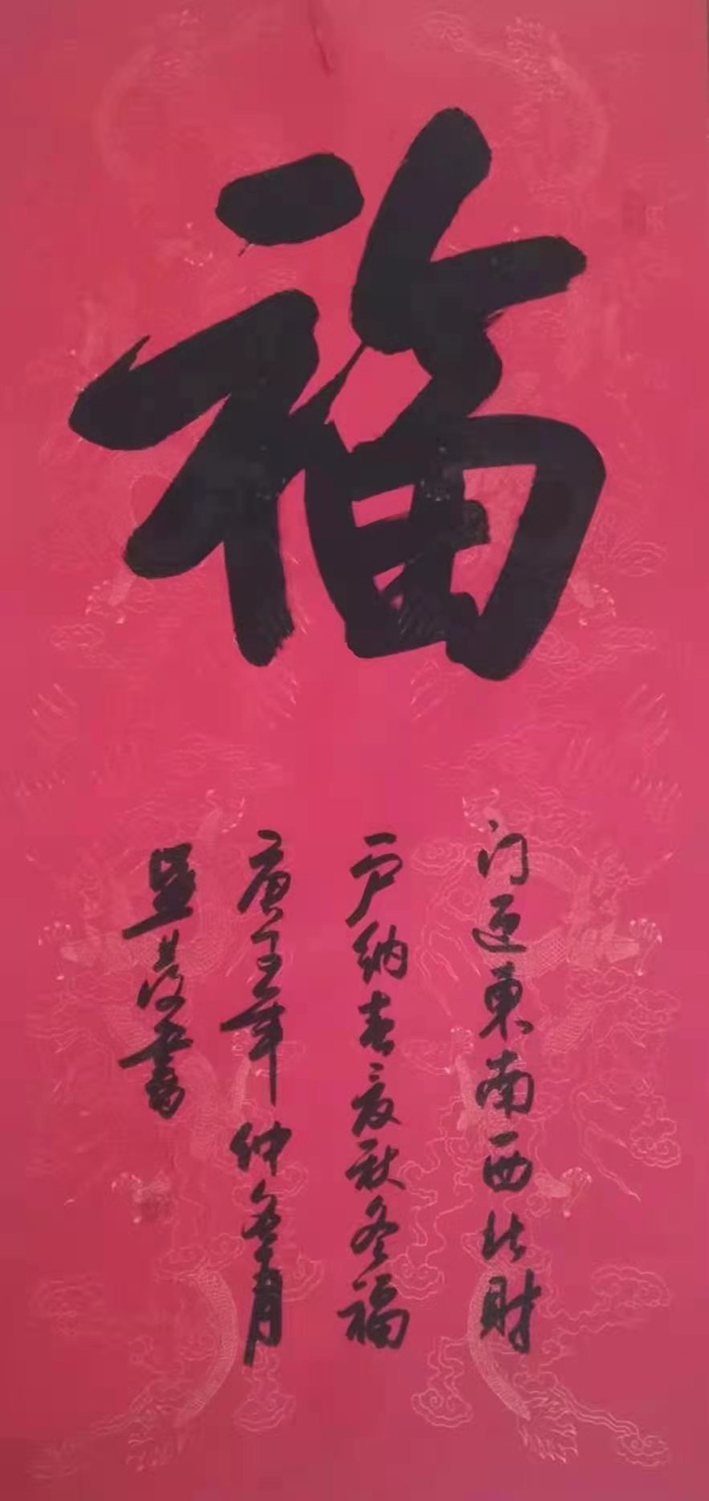 福
门迎東南西北財
户纳春夏秋冬福
庚子年仲冬月
書